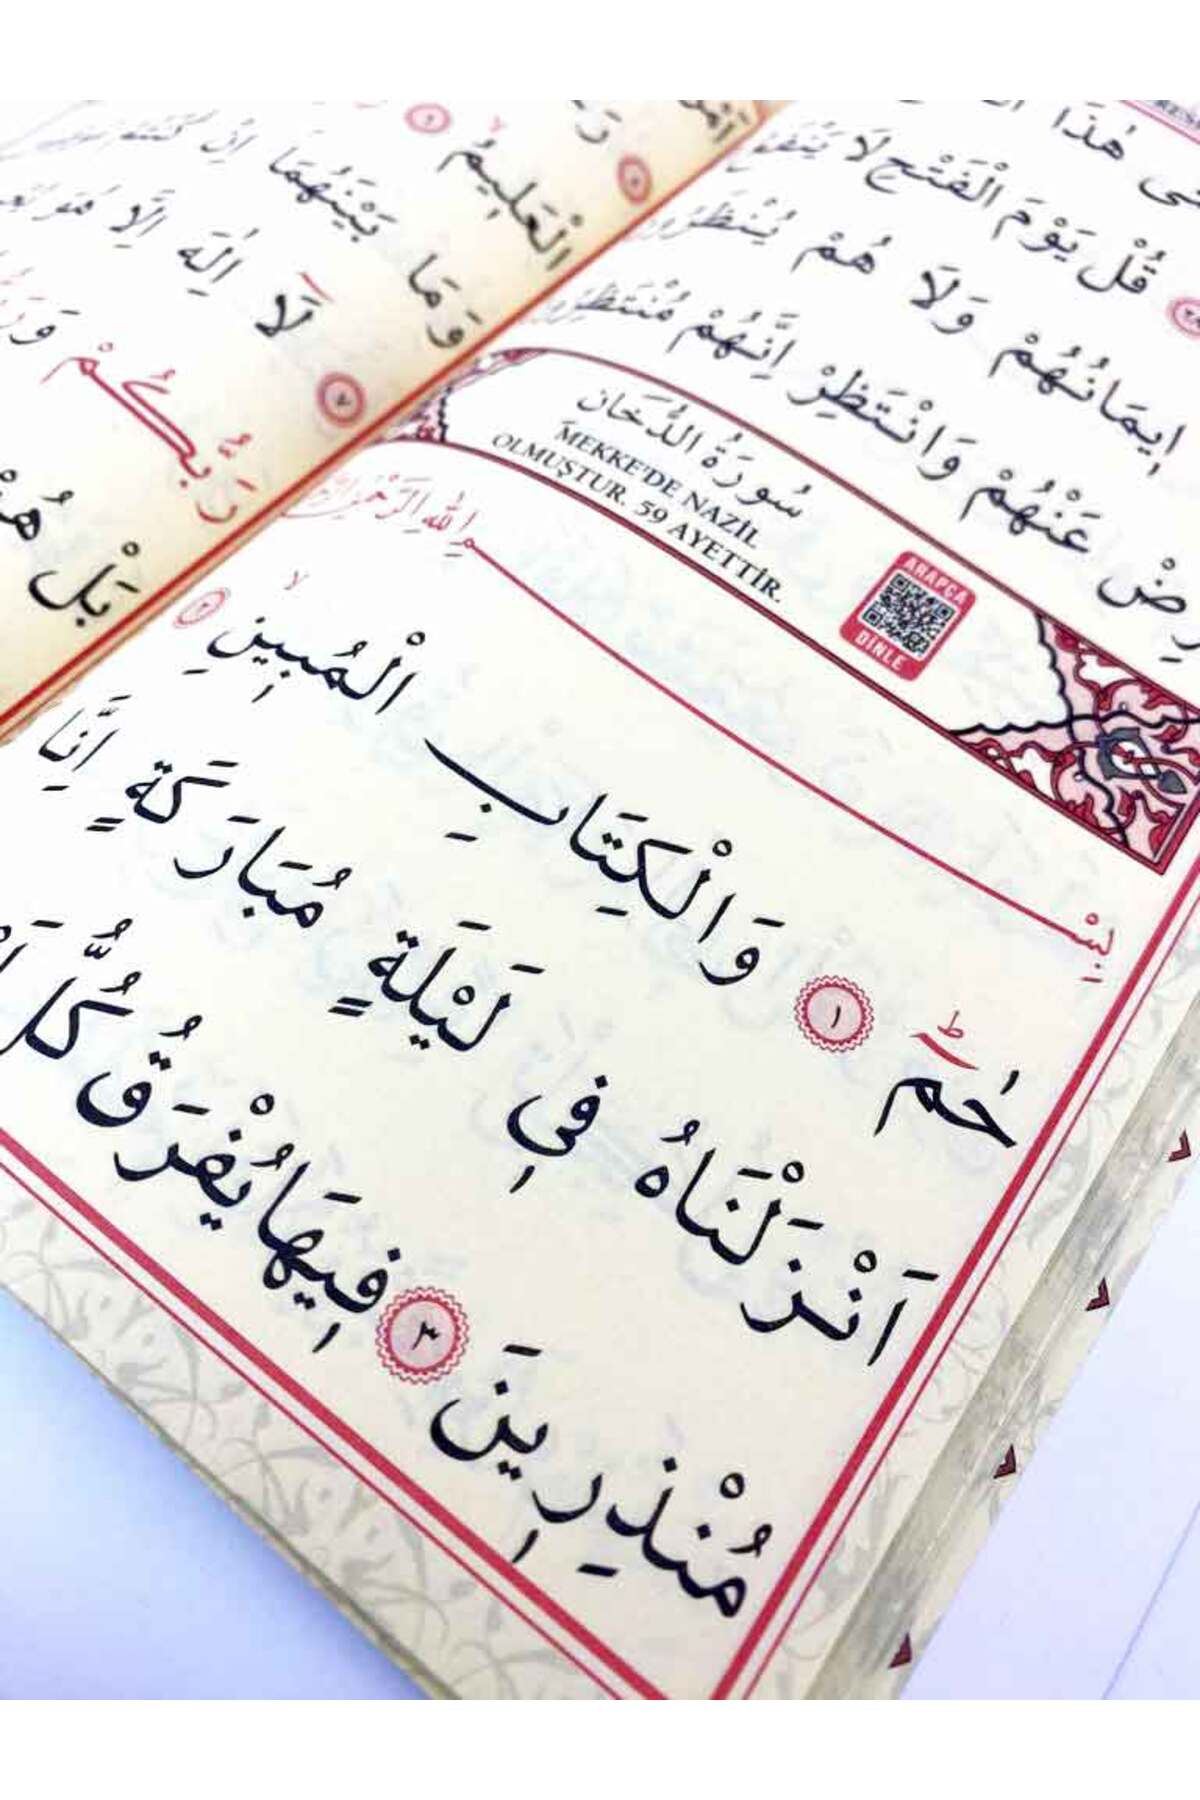 هٰذَا
قُلْ يَوْمَ الْفَتْحِ لَا يَنْفَعُ
اِيمَانُهُمْ وَلَا هُمْ يُنْظَرُونَ
عَنْهُمْ وَانْتَظِرْ اِنَّهُمْ مُنْتَظِرُونَ
سُورَةُ الدُّخَانِ
MEKKE'DE NAZİL
OLMUŞTUR. 59 AYETTİR.
ARAPÇA
DİNLE
بِسْمِ اللهِ الرَّحْمٰنِ
حٰمٓ ١ وَالْكِتَابِ الْمُبِينِ ٢ اِنَّا
اَنْزَلْنَاهُ فِي لَيْلَةٍ مُبَارَكَةٍ اِنَّا
مُنْذِرِينَ ٣ فِيهَا يُفْرَقُ كُلُّ
الْعَلِيمُ ٦
وَمَا بَيْنَهُمَا اِنْ كُنْتُمْ
٧ لَٓا اِلٰهَ اِلَّا هُوَ
رَبُّكُمْ وَرَبُّ
بَلْ هُمْ